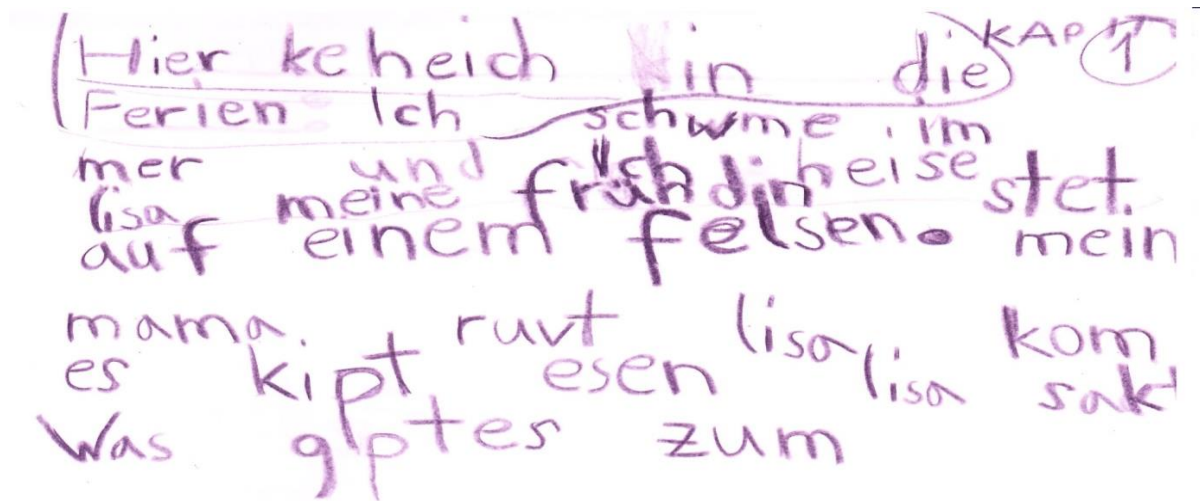 Hier ke heich in die KAPIT 1
Ferien Ich schwme im
mer und ich heise
lisa meine fründin stet.
auf einem felsen. mein
mama. ruvt lisa kom
es kipt esen lisa sak
Was giptes zum